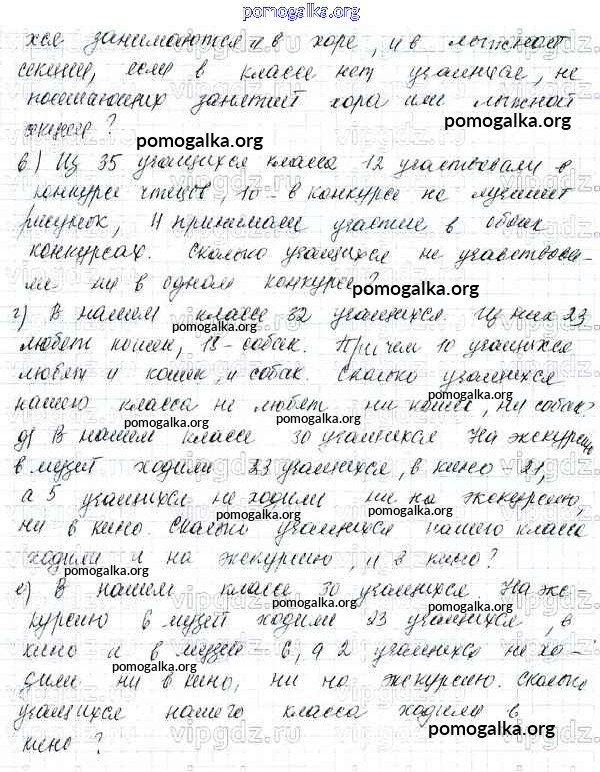 pomogalka.org
хся занимаются и в хоре, и в лыжной
секции, если в классе нет учащихся, не
посещающих занятий хора или лыжной
секции?
pomogalka.org
pomogalka.org
в) Из 35 учащихся класса 12 участвовали в
конкурсе чтецов, 10 - в конкурсе на лучший
рисунок, 4 принимали участие в обоих
pomogalka.org
конкурсах. Сколько учащихся не участвова-
ли ни в одном конкурсе?
pomogalka.org
г) В нашем классе 32 учащихся. Из них 23
pomogalka.org
любят кошек, 18 - собак. Причем 10 учащихся
любят и кошек, и собак. Сколько учащихся
pomogalka.org
нашего класса не любят ни кошек, ни собак?
pomogalka.org
д) В нашем классе 30 учащихся. На экскурсию
в музей ходили 23 учащихся, в кино - 21,
а 5 учащихся не ходили ни на экскурсию,
pomogalka.org
pomogalka.org
ни в кино. Сколько учащихся нашего класса
ходили и на экскурсию, и в кино?
pomogalka.org
е) В нашем классе 30 учащихся. На экс-
pomogalka.org
курсию в музей ходили 23 учащихся, в
кино и в музей - 6, а 2 учащихся не хо-
pomogalka.org
дили ни в кино, ни на экскурсию. Сколько
учащихся нашего класса ходили в
pomogalka.org
кино?
vipgdz.ru